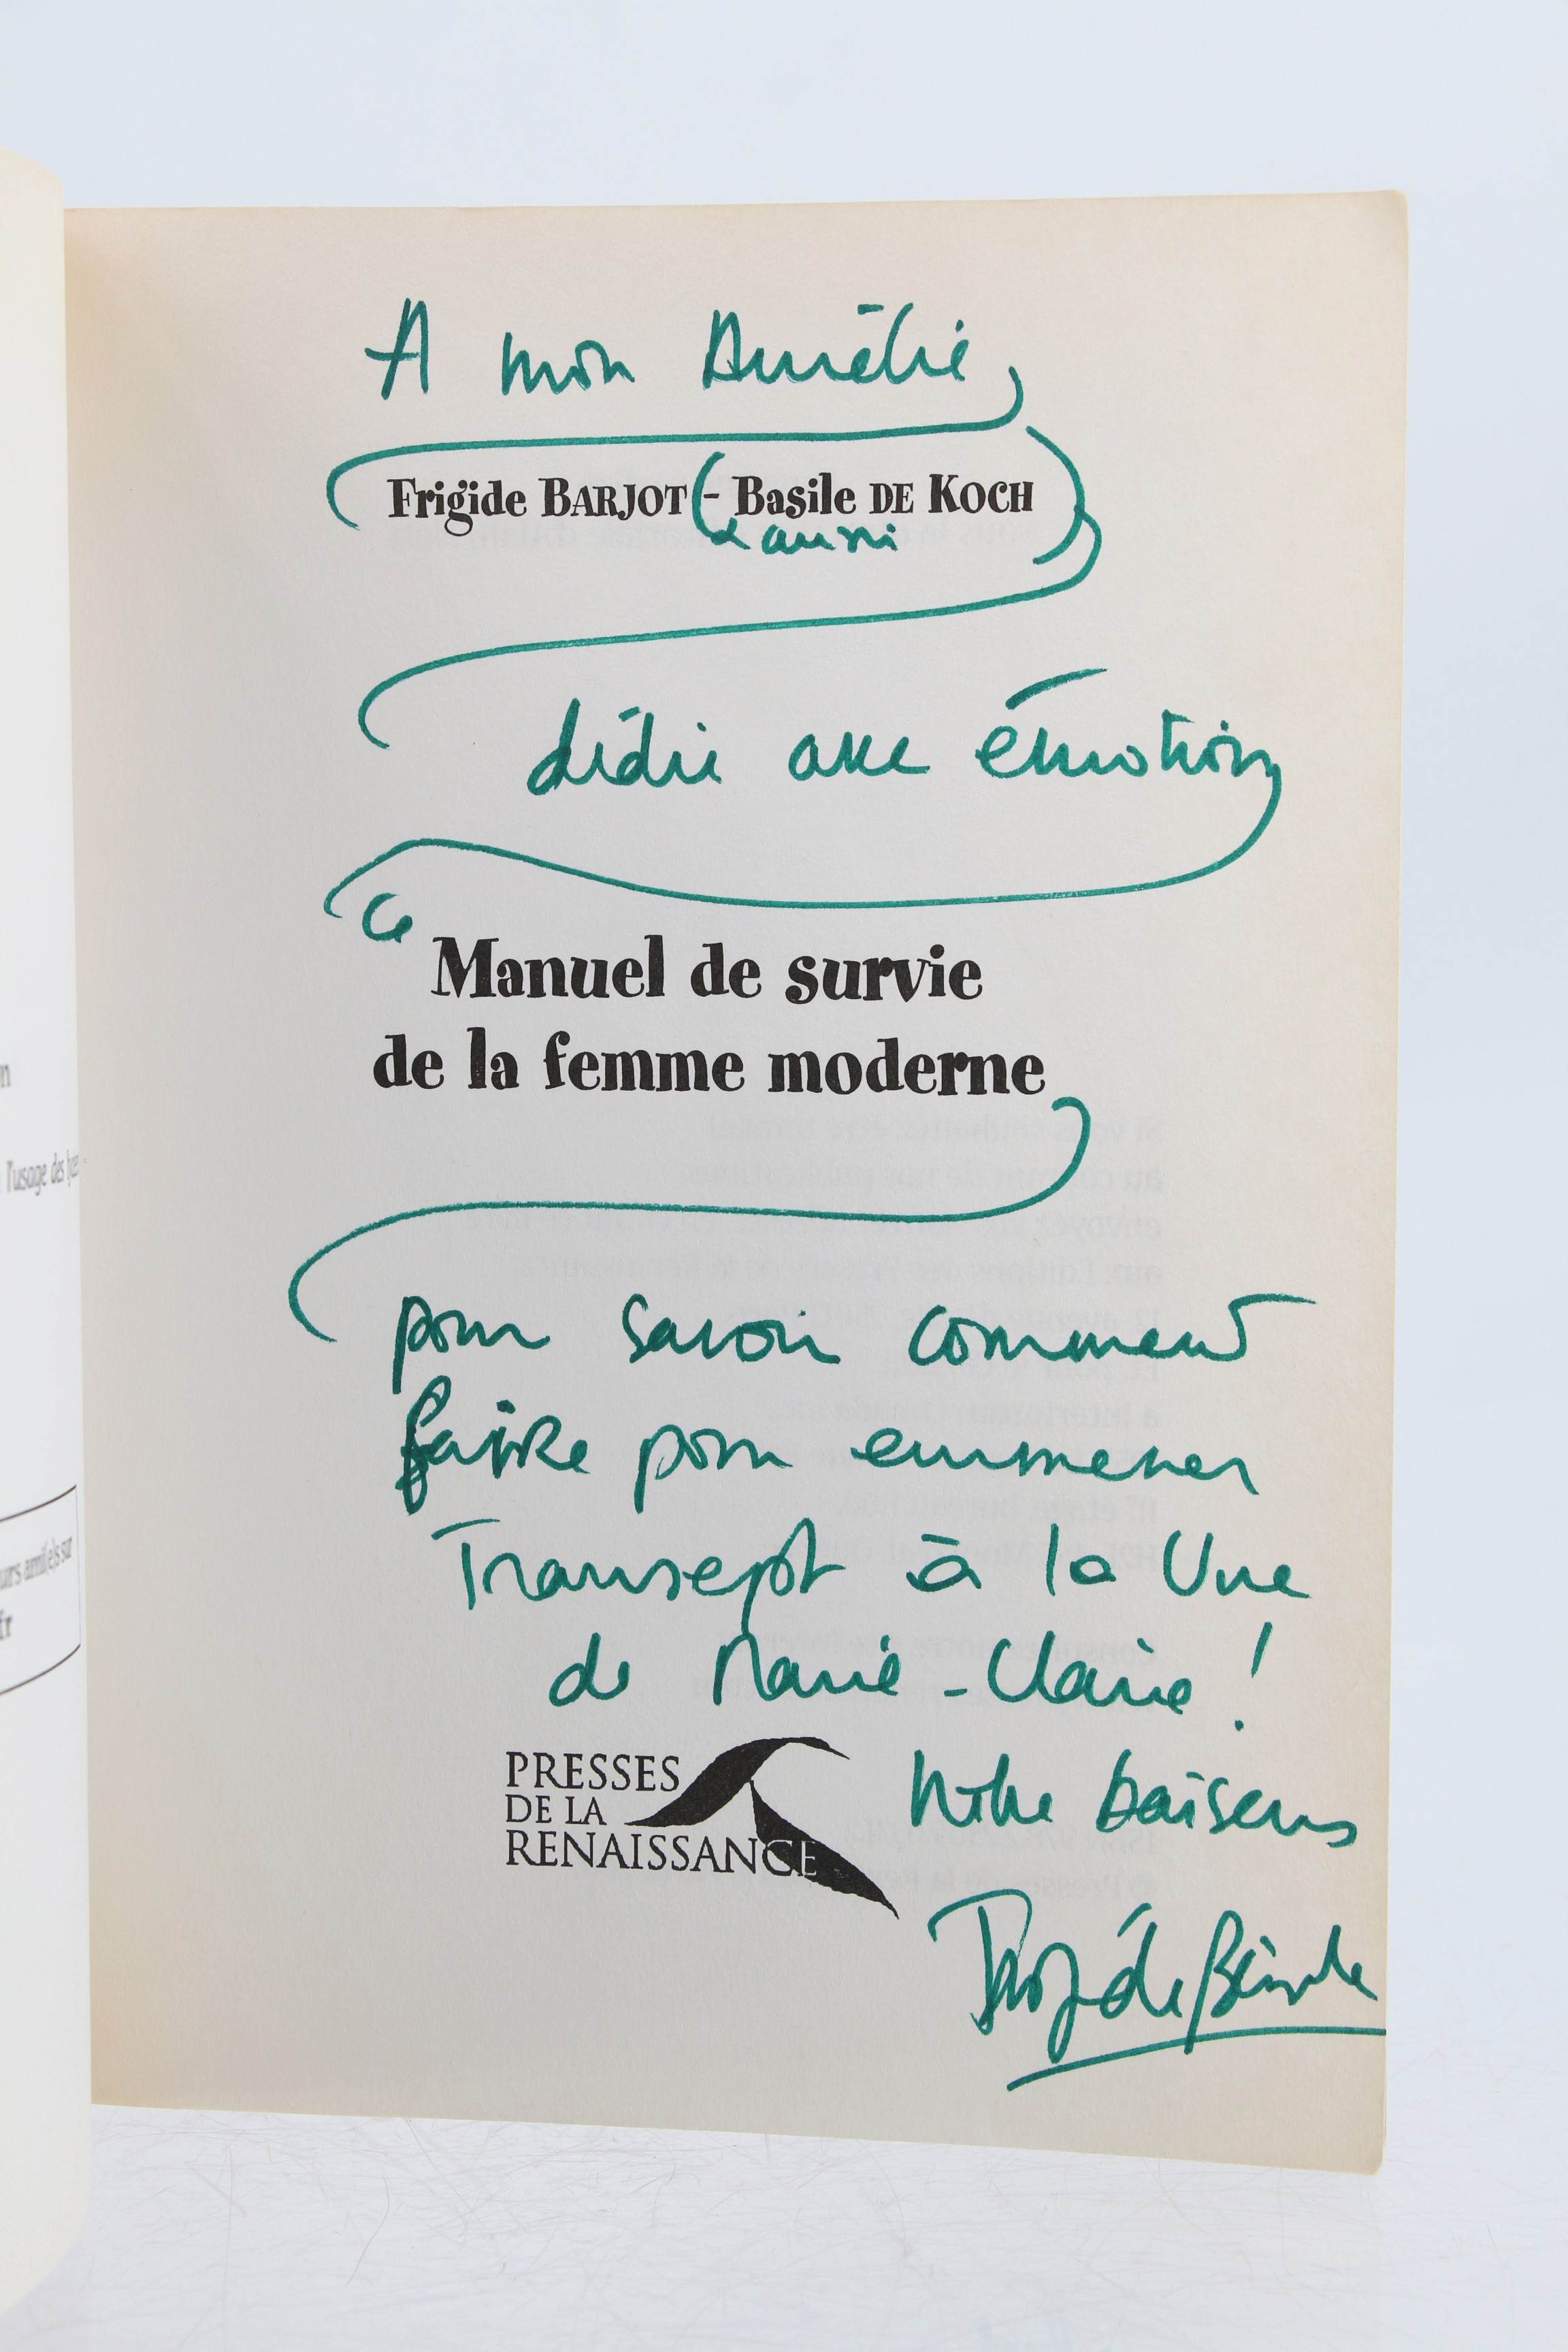 A mon Aurélie,
Frigide BARJOT (- Basile DE KOCH)
aussi
dédie avec émotion
Ce
Manuel de survie
de la femme moderne
pour savoir comment
faire pour emmener
Transept à la Une
de Marie-Claire !
PRESSES
DE LA
RENAISSANCE
baisers
n
l'usage des
urs ami(e)s sur
fr